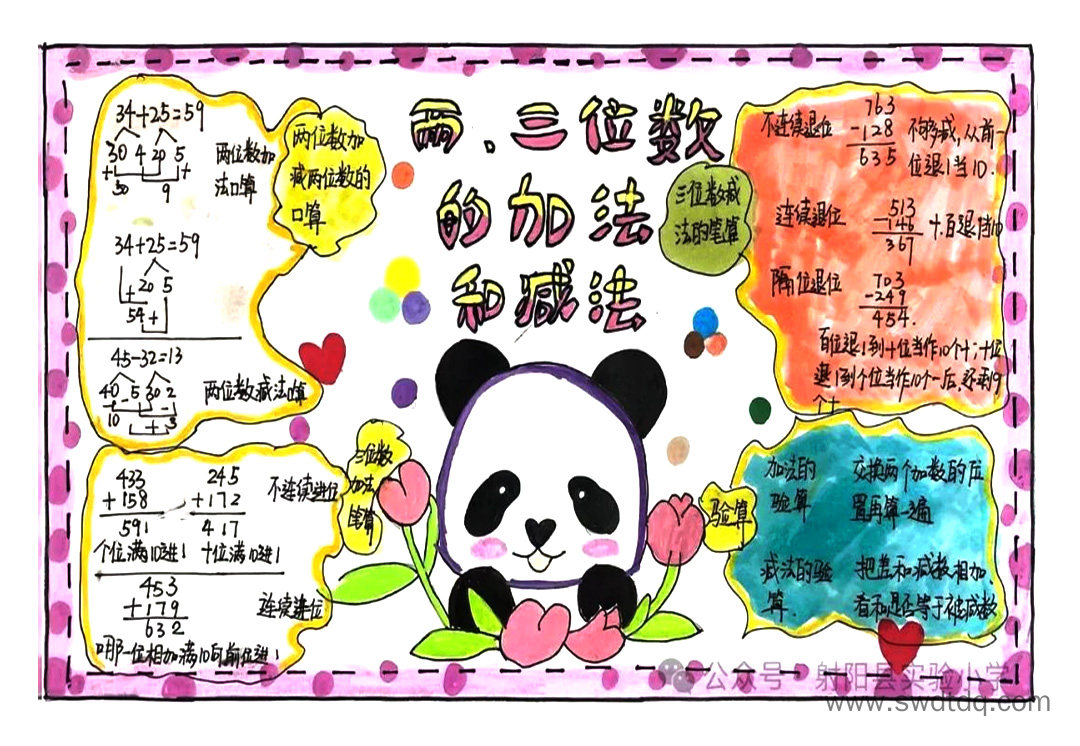 两、三位数
的加法
和减法
34+25=59
30 4 20 5
+ +
50 9
两位数加
法口算
34+25=59
20 5
+
54+
45-32=13
40 5 30 2
- -
10 + 3
两位数减法口算
两位数加
减两位数的
口算
三位数减
法的笔算
不连续退位
763
-128
635
不够减,从前一
位退1当10.
连续退位
513
-146
367
十.百退1当10
隔位退位
703
-249
454.
百位退1到十位当作10个十;十位
退1到个位当作10个一后,还剩9
个十
433
+158
591
245
+172
417
不连续进位
个位满10进1 十位满10进1
453
+179
632
连续进位
哪一位相加满10向前位进1
三位数
加法
笔算
验算
加法的
验算
交换两个加数的位
置再算一遍
减法的验
算.
把差和减数相加
看和是否等于被减数
公众号·射阳县实验小学
www.swdtdq.com